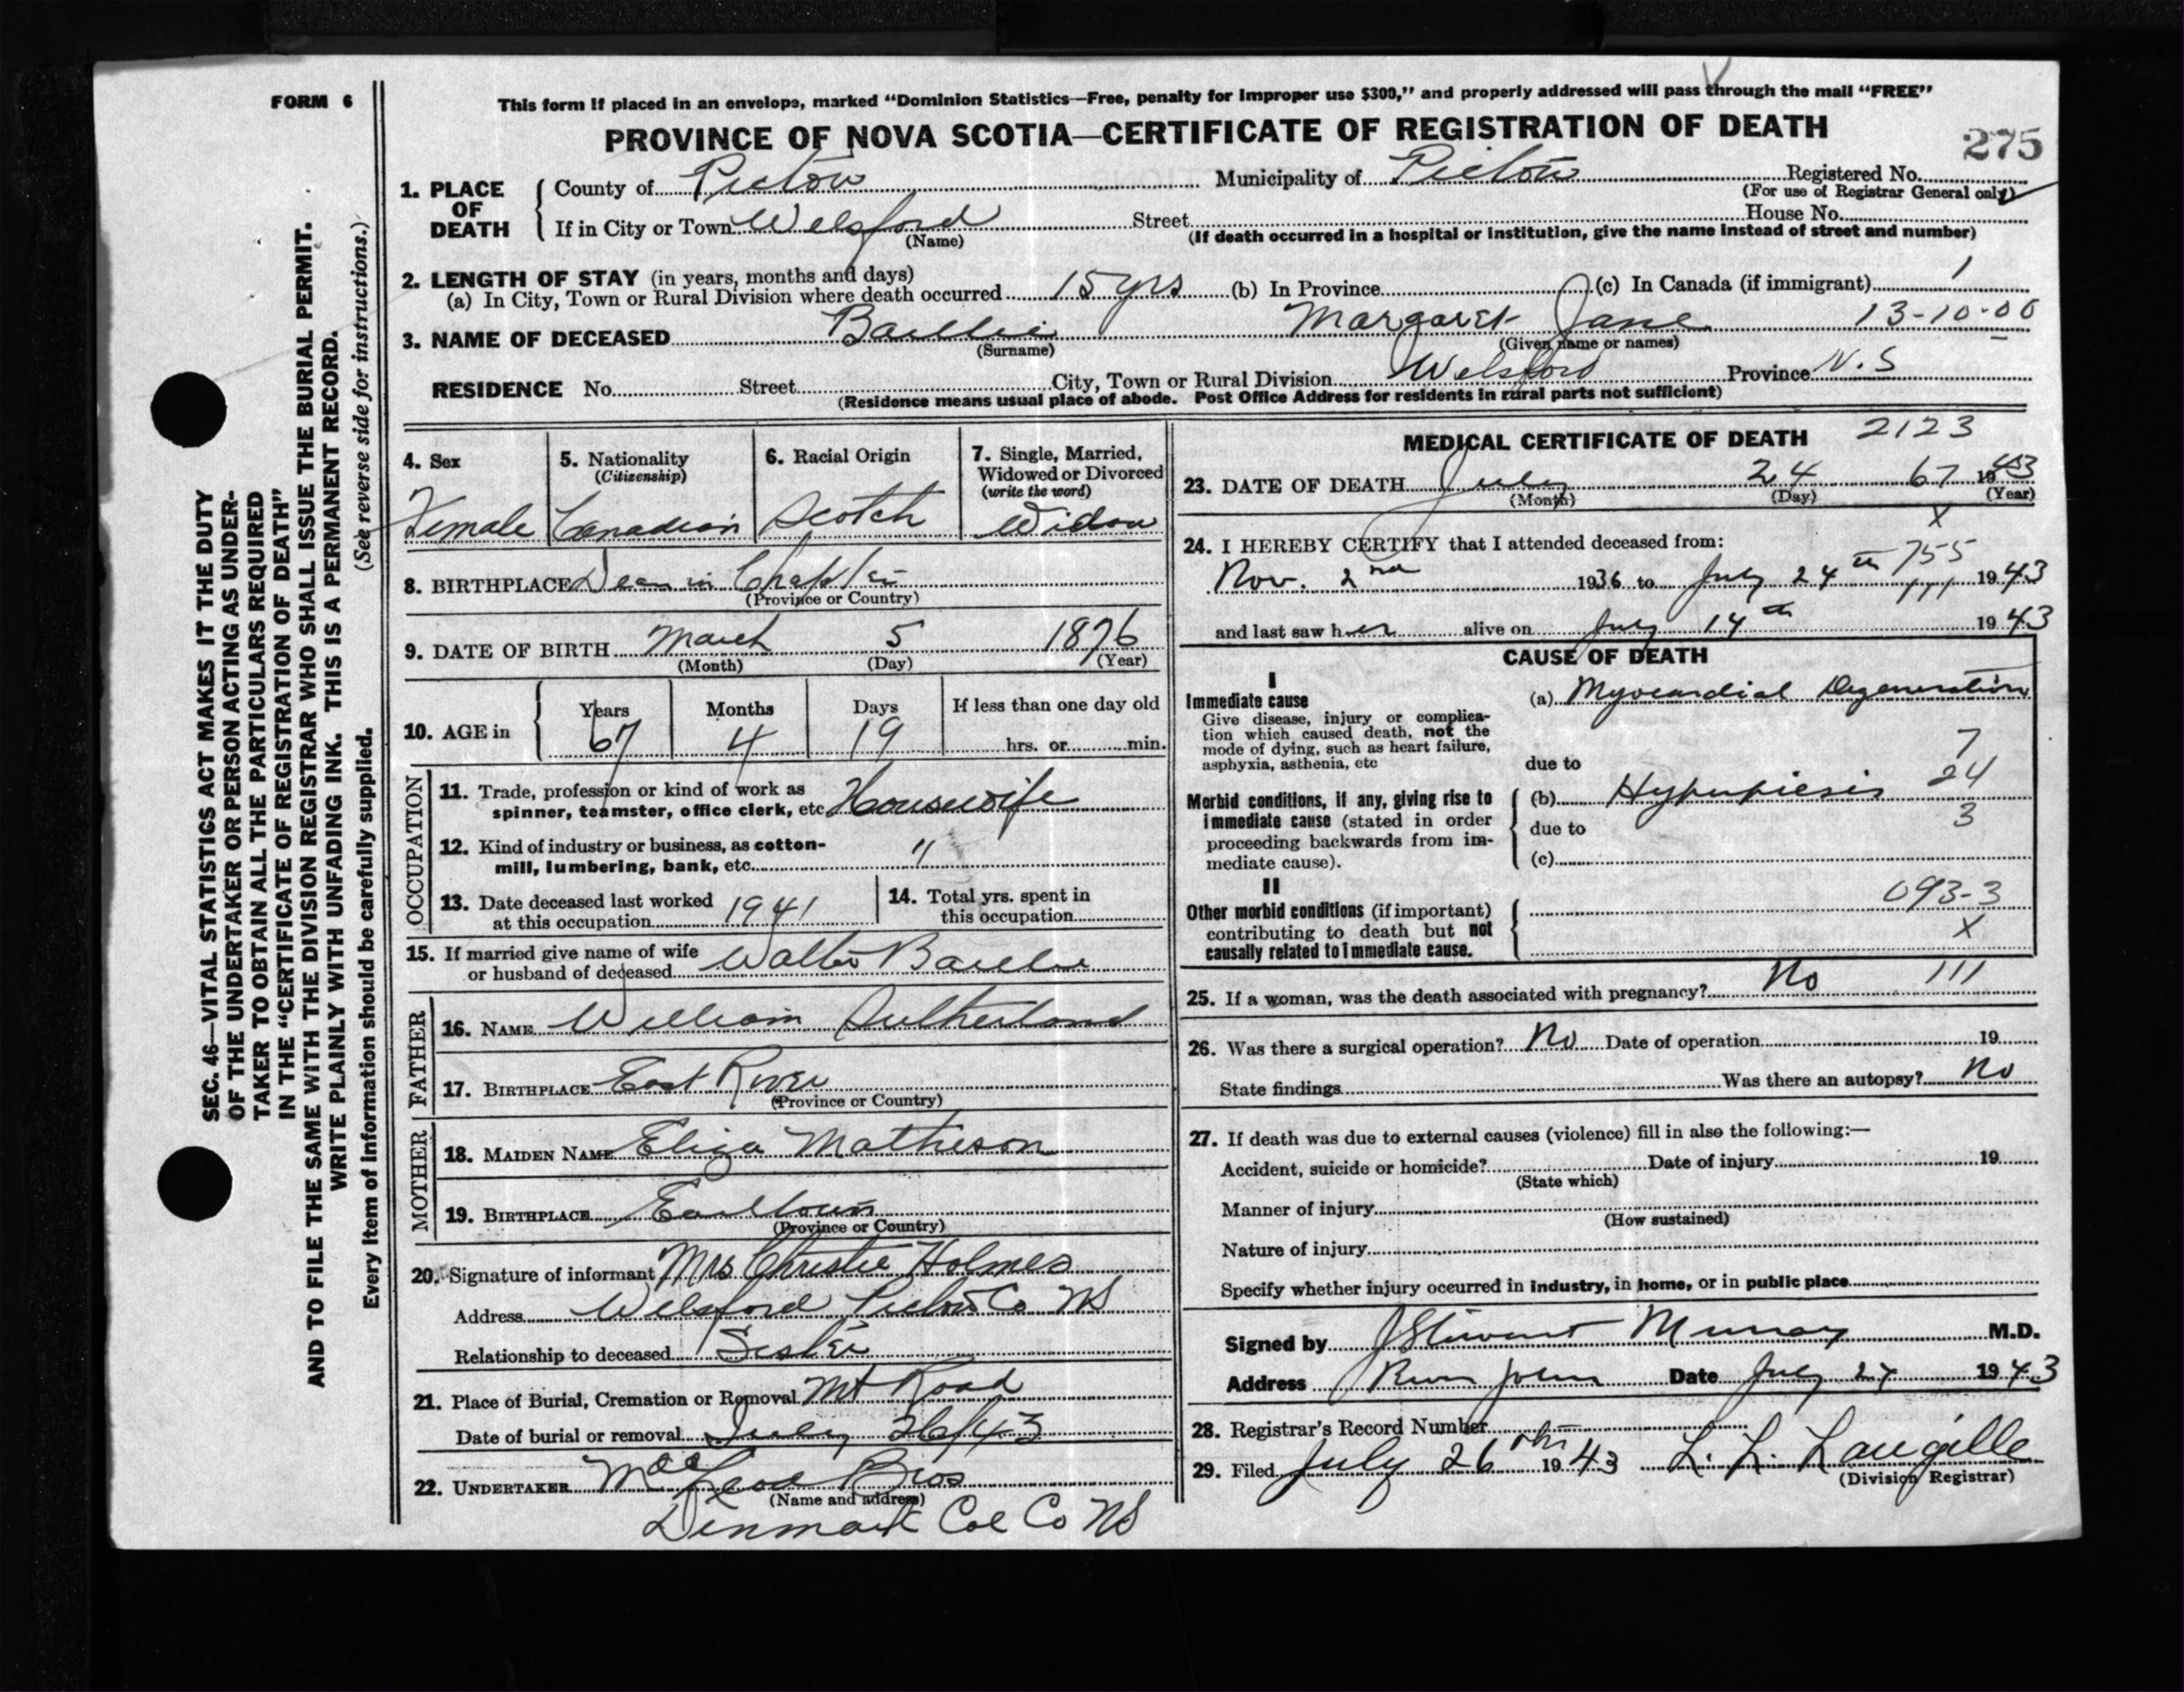 FORM 6
This form if placed in an envelope, marked "Dominion Statistics—Free, penalty for improper use $300," and properly addressed will pass through the mail "FREE"
PROVINCE OF NOVA SCOTIA—CERTIFICATE OF REGISTRATION OF DEATH
275
1. PLACE OF DEATH
County of Pictou Municipality of Pictou Registered No.
(For use of Registrar General only)
If in City or Town Welsford Street House No.
(Name) (If death occurred in a hospital or institution, give the name instead of street and number)
2. LENGTH OF STAY (in years, months and days)
(a) In City, Town or Rural Division where death occurred 15 yrs (b) In Province (c) In Canada (if immigrant) 1
3. NAME OF DECEASED Baillie Margaret Jane 13-10-00
(Surname) (Given name or names)
RESIDENCE No. Street City, Town or Rural Division Welsford Province N.S
(Residence means usual place of abode. Post Office Address for residents in rural parts not sufficient)
4. Sex
Female
5. Nationality
(Citizenship)
Canadian
6. Racial Origin
Scotch
7. Single, Married,
Widowed or Divorced
(write the word)
Widow
8. BIRTHPLACE
(Province or Country)
9. DATE OF BIRTH March 5 1876
(Month) (Day) (Year)
10. AGE in
Years Months Days If less than one day old
67 4 19 hrs. or min.
OCCUPATION
11. Trade, profession or kind of work as
spinner, teamster, office clerk, etc Housewife
12. Kind of industry or business, as cotton-
mill, lumbering, bank, etc. "
13. Date deceased last worked
at this occupation 1941
14. Total yrs. spent in
this occupation
15. If married give name of wife
or husband of deceased Walter Baillie
FATHER
16. NAME William Sutherland
17. BIRTHPLACE East River
(Province or Country)
MOTHER
18. MAIDEN NAME Eliza Matheson
19. BIRTHPLACE Earltown
(Province or Country)
20. Signature of informant Mrs Christie Holmes
Address Welsford Pictou Co NS
Relationship to deceased Sister
21. Place of Burial, Cremation or Removal Mt Road
Date of burial or removal July 26/43
22. UNDERTAKER MacLeod Bros
(Name and address)
Denmark Col Co NS
MEDICAL CERTIFICATE OF DEATH 2123
23. DATE OF DEATH July 24 67 1943
(Month) (Day) (Year)
X
24. I HEREBY CERTIFY that I attended deceased from:
755
Nov. 2nd 1936 to July 24th 1943
111
and last saw her alive on July 14th 1943
CAUSE OF DEATH
I
Immediate cause
Give disease, injury or complica-
tion which caused death, not the
mode of dying, such as heart failure,
asphyxia, asthenia, etc
(a) Myocardial Degeneration
7
due to
24
Morbid conditions, if any, giving rise to
immediate cause (stated in order
proceeding backwards from im-
mediate cause).
(b) Hyperpiesis
3
due to
(c)
II
Other morbid conditions (if important)
contributing to death but not
causally related to immediate cause.
093-3
X
25. If a woman, was the death associated with pregnancy? No 111
26. Was there a surgical operation? No Date of operation 19
State findings Was there an autopsy? No
27. If death was due to external causes (violence) fill in also the following:—
Accident, suicide or homicide? Date of injury 19
(State which)
Manner of injury
(How sustained)
Nature of injury
Specify whether injury occurred in industry, in home, or in public place
Signed by J Stewart Murray M.D.
Address River John Date July 24 1943
28. Registrar's Record Number
29. Filed July 26 1943 L. L. Langille
(Division Registrar)
SEC. 46—VITAL STATISTICS ACT MAKES IT THE DUTY
OF THE UNDERTAKER OR PERSON ACTING AS UNDER-
TAKER TO OBTAIN ALL THE PARTICULARS REQUIRED
IN THE "CERTIFICATE OF REGISTRATION OF DEATH"
AND TO FILE THE SAME WITH THE DIVISION REGISTRAR WHO SHALL ISSUE THE BURIAL PERMIT.
WRITE PLAINLY WITH UNFADING INK. THIS IS A PERMANENT RECORD.
Every item of information should be carefully supplied. (See reverse side for instructions.)